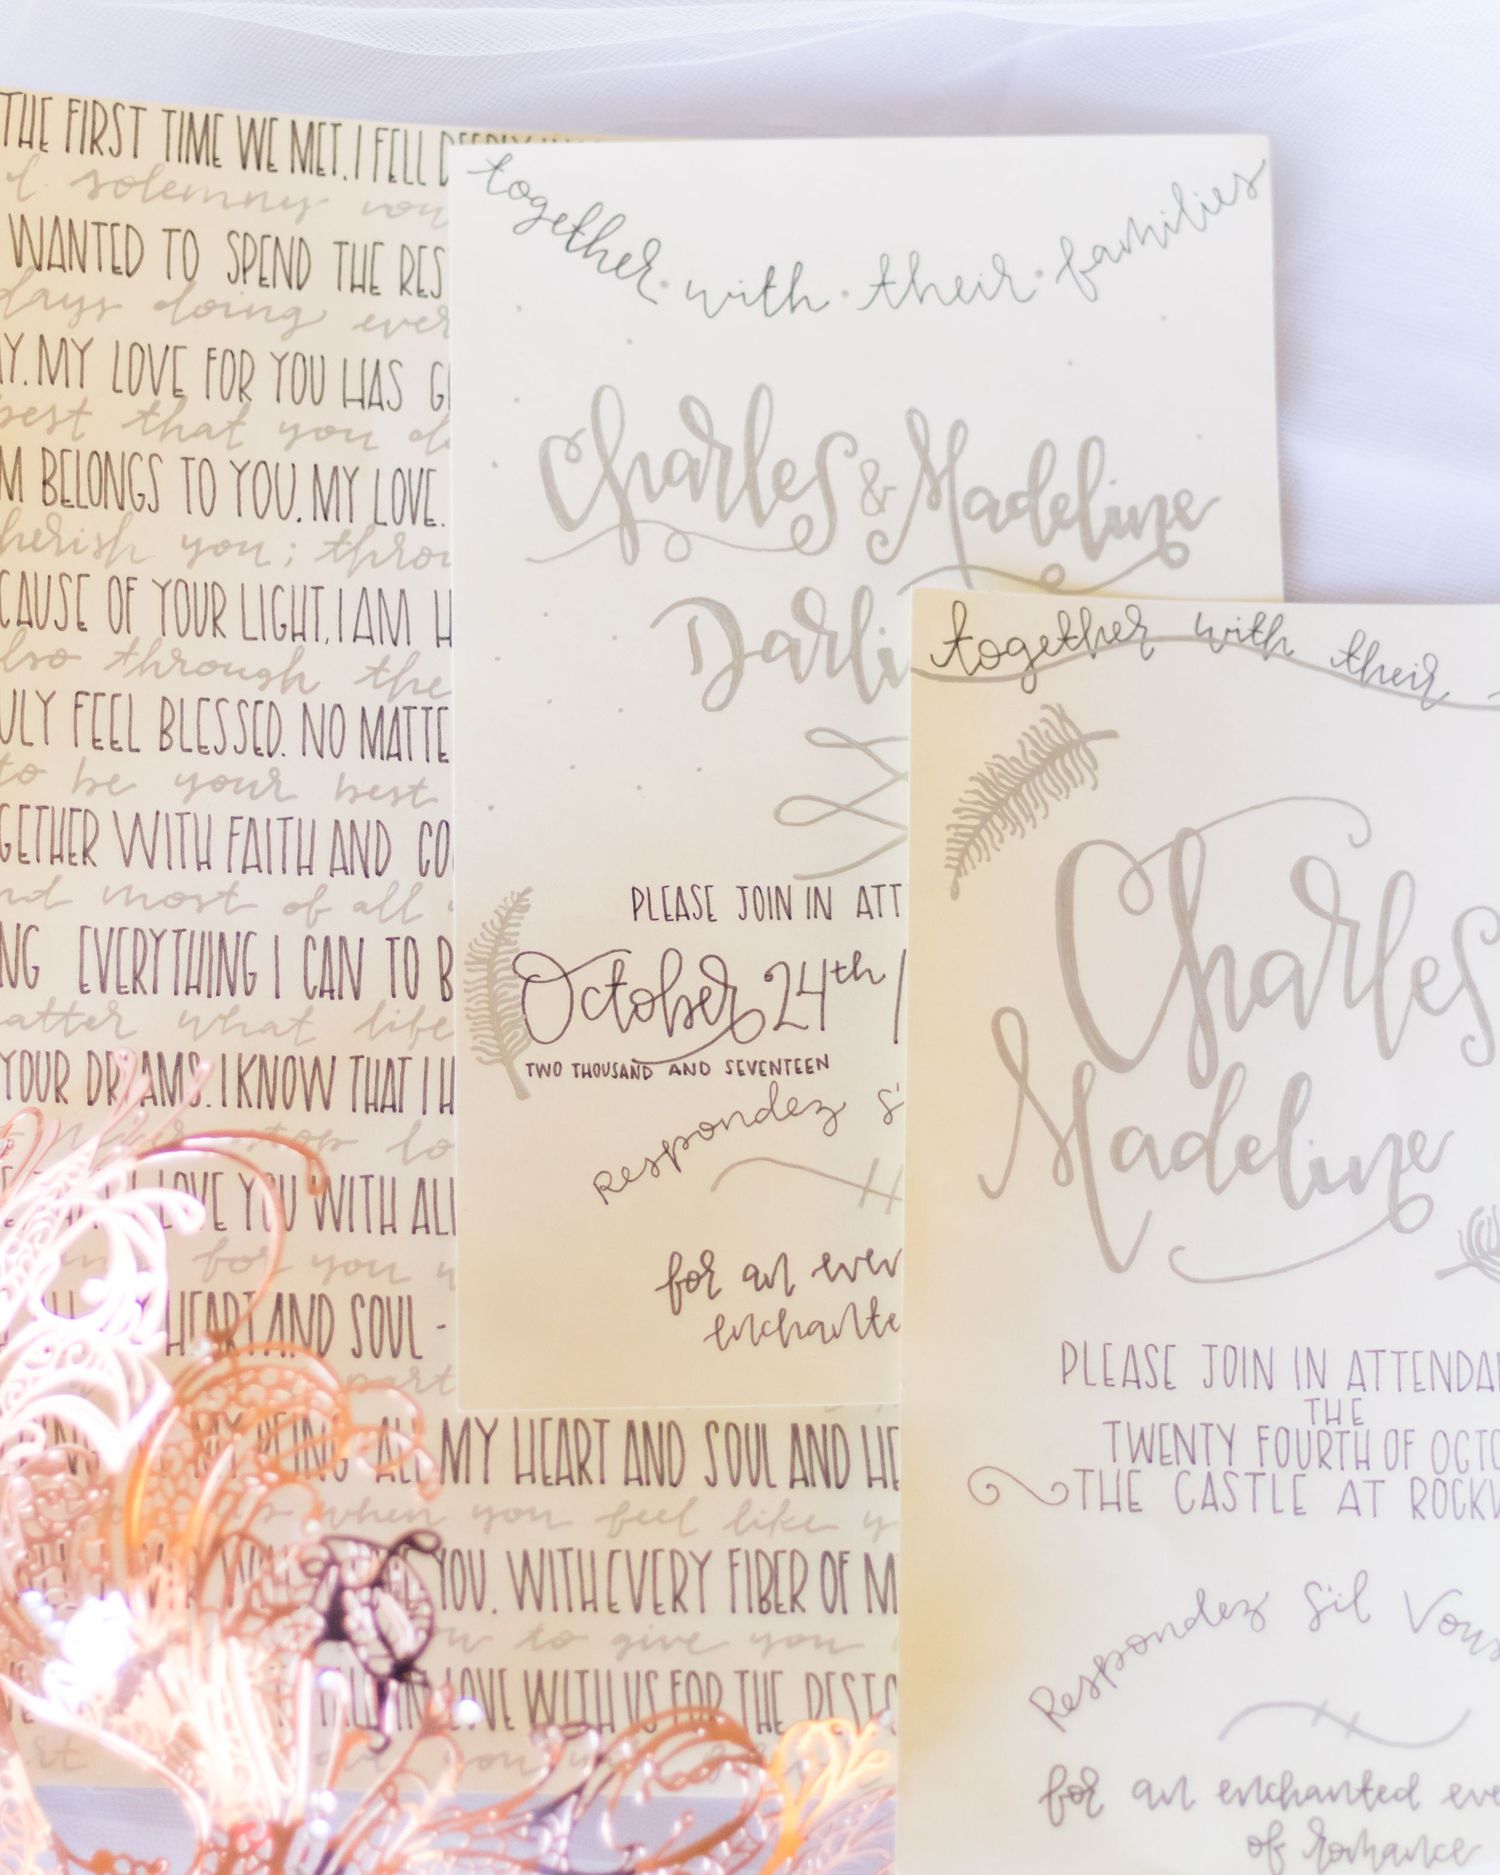 THE FIRST TIME WE MET. I FELL
I solemnny vow
WANTED TO SPEND THE RES
days doing ever
Y. MY LOVE FOR YOU HAS G
best that you do
M BELONGS TO YOU. MY LOVE.
herish you; throu
CAUSE OF YOUR LIGHT, I AM H
lso through the
ULY FEEL BLESSED. NO MATTE
to be your best
GETHER WITH FAITH AND CO
nd most of all
NG EVERYTHING I CAN TO B
atter what life
YOUR DREAMS. I KNOW THAT I H
LOVE YOU WITH ALL
for you
HEART AND SOUL -
part
MY BEING ALL MY HEART AND SOUL AND HE
when you feel like y
YOU. WITH EVERY FIBER OF M
to give you
LOVE WITH US FOR THE REST O
you
together · with · their · families
Charles & Madeline
Darli
PLEASE JOIN IN ATT
October 24th /
TWO THOUSAND AND SEVENTEEN
Respondez s'
for an even
enchante
together with their
Charles
Madeline
PLEASE JOIN IN ATTENDAN
THE
TWENTY FOURTH OF OCTO
THE CASTLE AT ROCKW
Respondez Sil Vous
for an enchanted eve
of romance